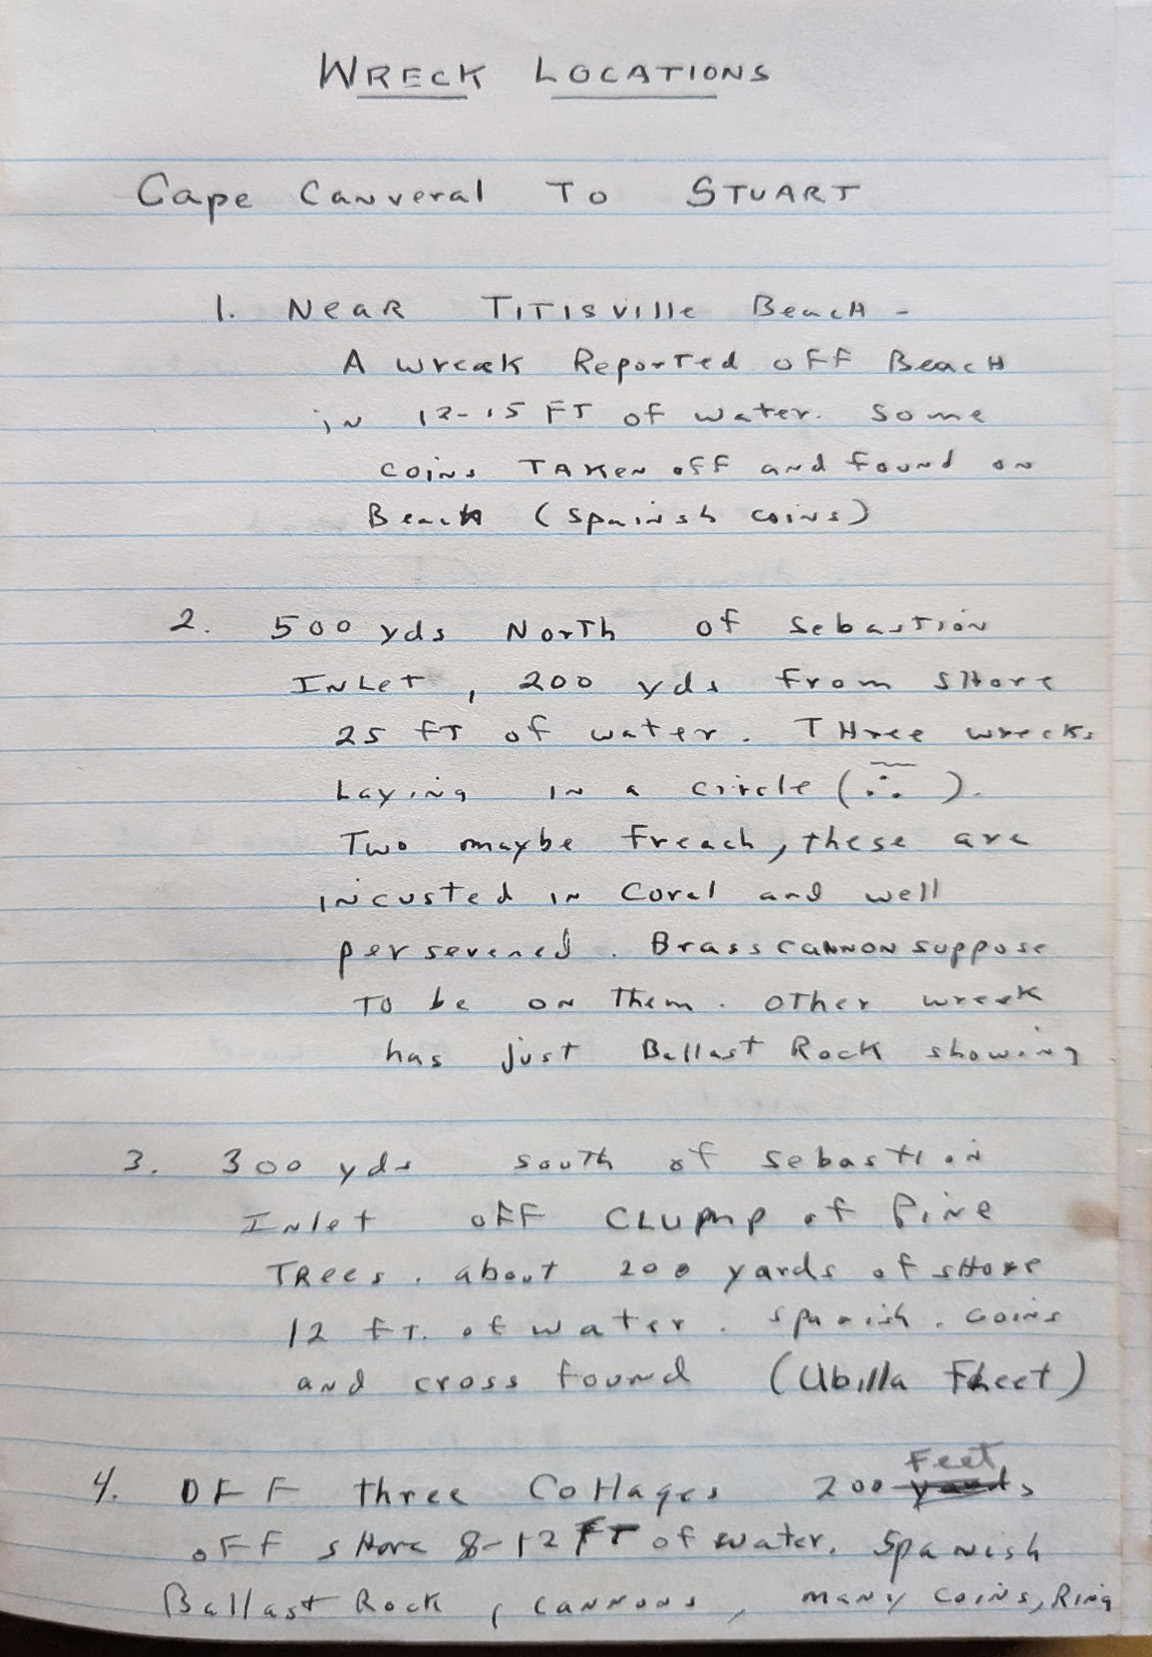 WRECK LOCATIONS
Cape Canveral To STUART
1. Near Titisville Beach -
A wreak Reported off Beach
in 12-15 FT of water. Some
coins TAKen off and found on
Beach (Spainsh coins)
2. 500 yds North of Sebastion
INLeT, 200 yds from sHore
25 fT of water. THree wrecks
Laying in a circle (∴).
Two maybe Freach, these are
incusted in Coral and well
persevered. Brass cannon suppose
To be on Them. OTher wreck
has just Ballast Rock showing
3. 300 yds south of Sebastion
Inlet off CLUMP of Pine
Trees. about 200 yards of sHore
12 fT. of water. Spanish. Coins
and cross found (Ubilla Fleet)
4. OFF three Cottages 200 Feet
OFF sHore 8-12 FT of water. Spanish
Ballast Rock, cannons, many coins, Ring